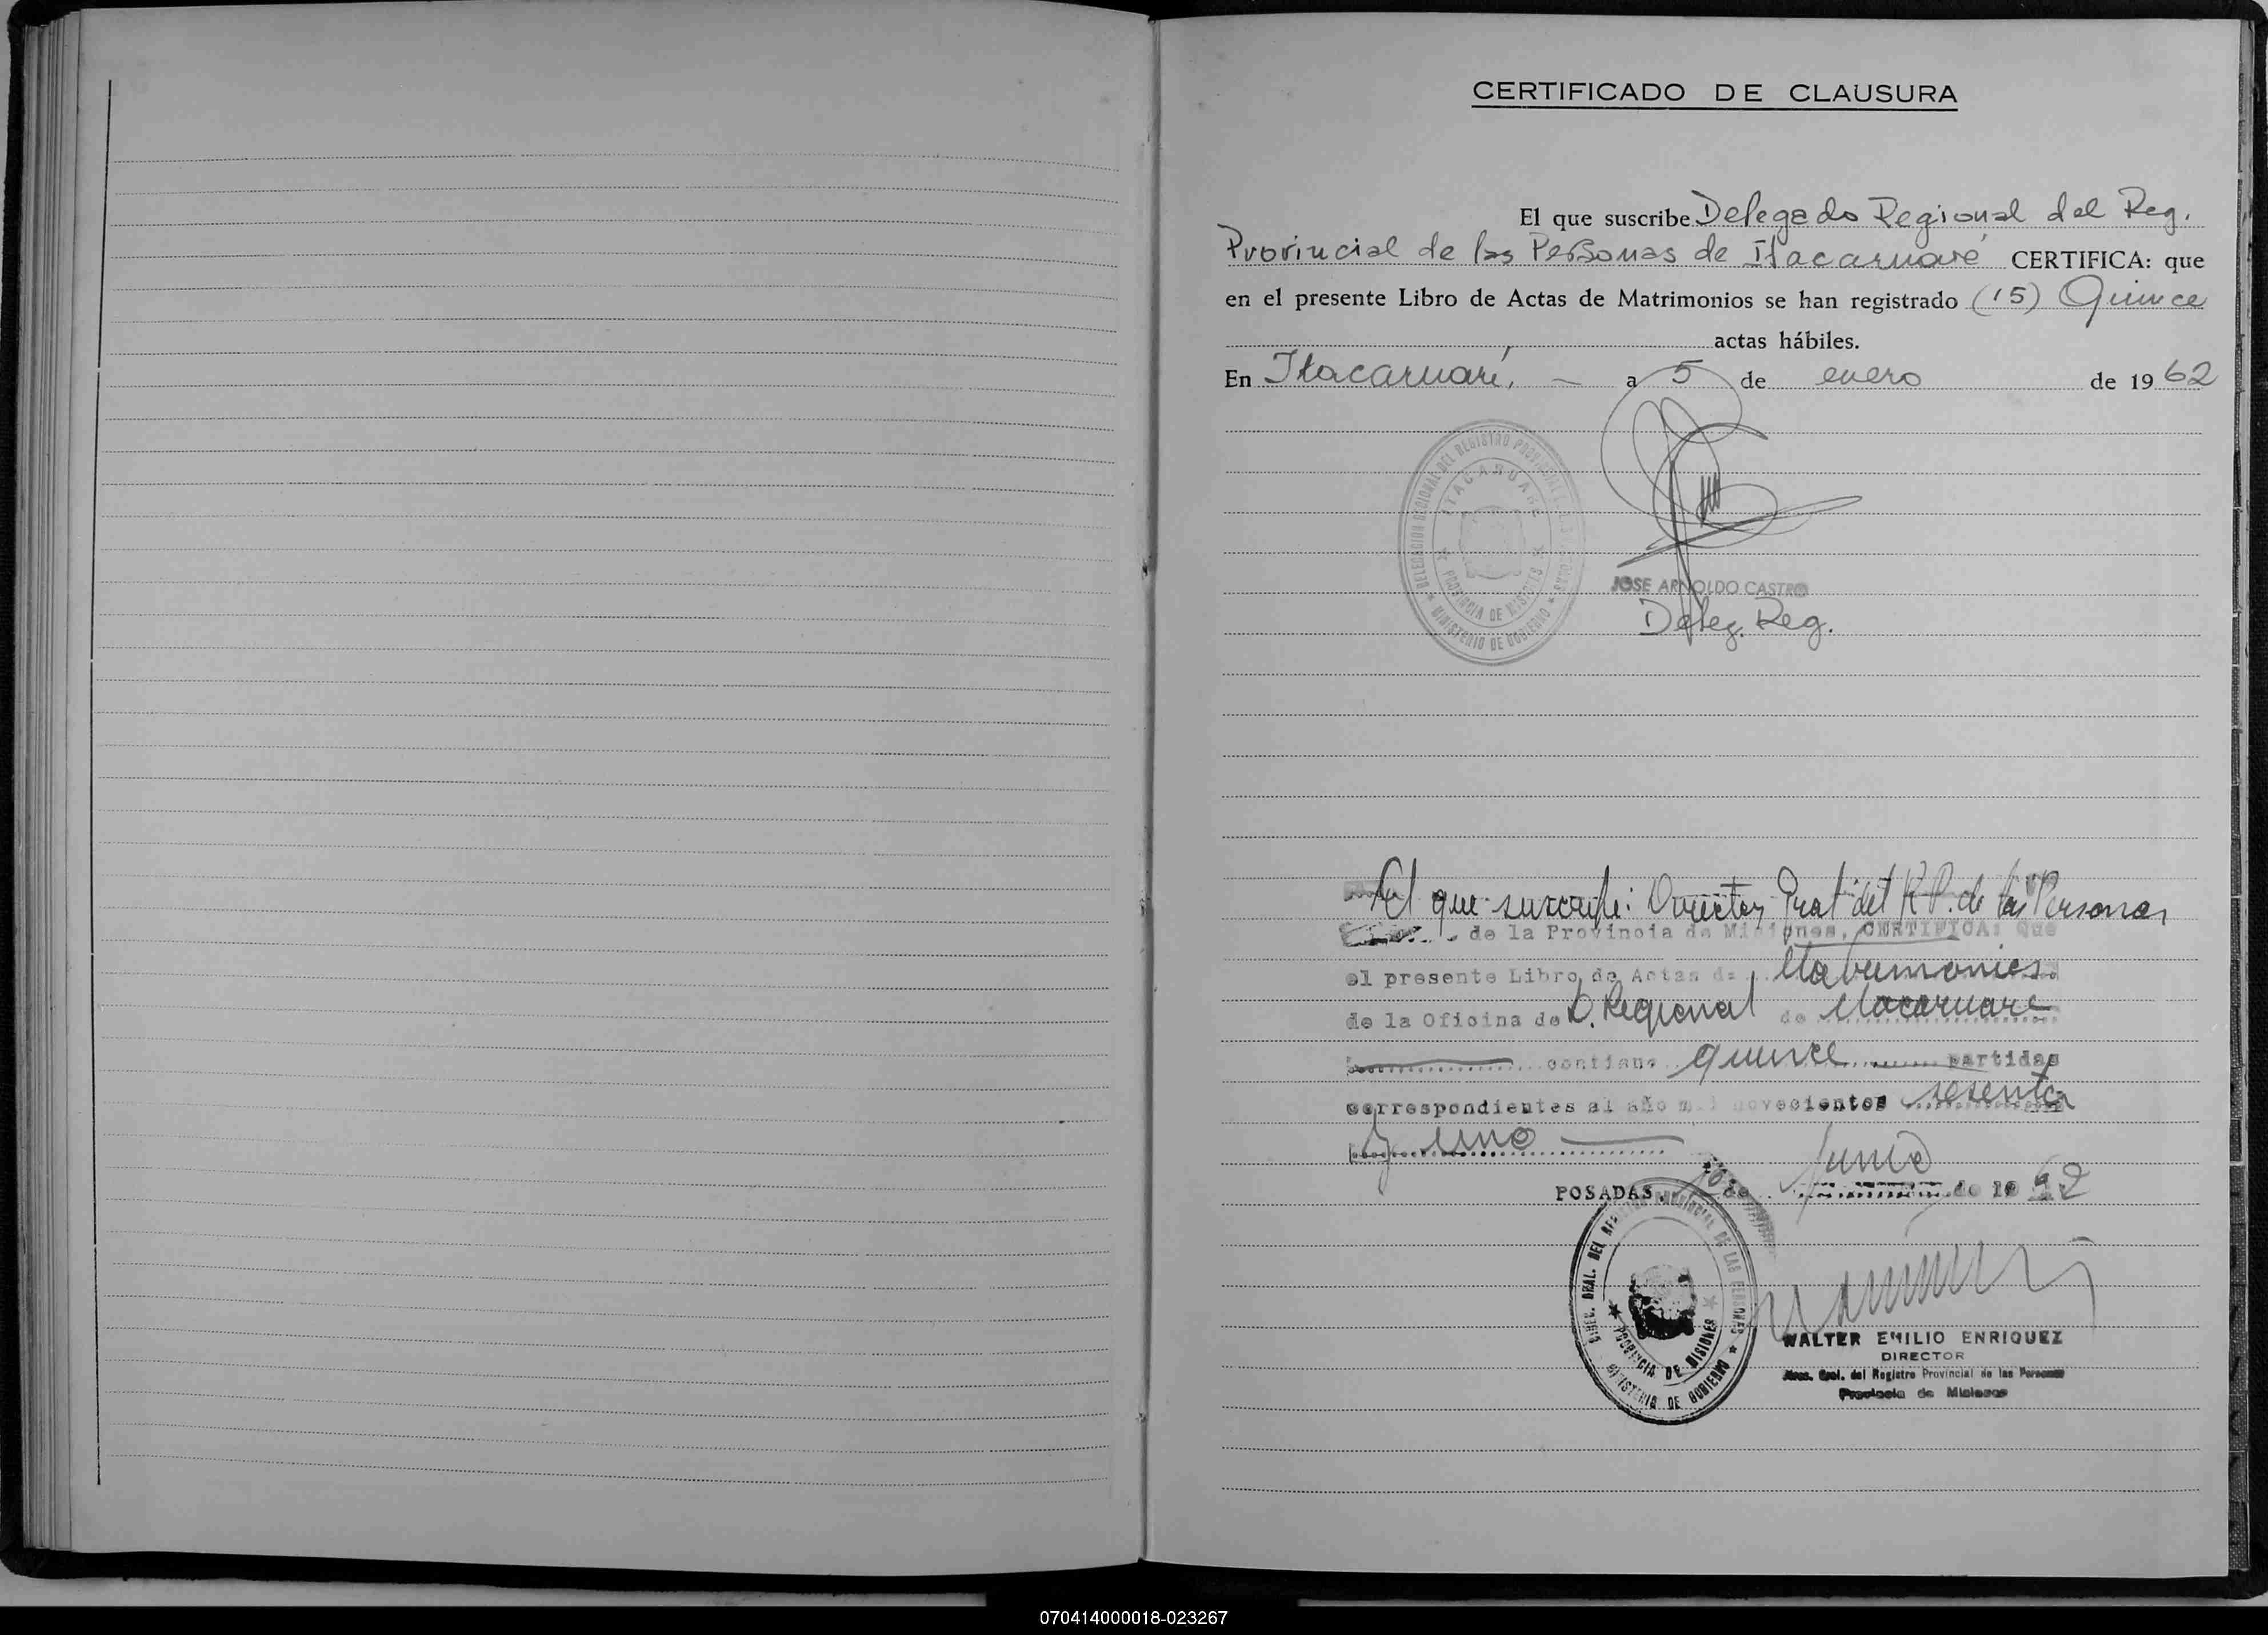 CERTIFICADO DE CLAUSURA
El que suscribe Delegado Regional del Reg.
Provincial de las Personas de Itacaruaré CERTIFICA: que
en el presente Libro de Actas de Matrimonios se han registrado (15) Quince
actas hábiles.
En Itacaruaré, — a 5 de enero de 1962
DELEGACION REGIONAL DEL REGISTRO PROVINCIAL DE LAS PERSONAS
ITACARUARE
PROVINCIA DE MISIONES
MINISTERIO DE GOBIERNO
JOSE ARNOLDO CASTRO
Deleg. Reg.
El que suscribe: Director Gral del R.P. de las Personas
de la Provincia de Misiones, CERTIFICA: Que
el presente Libro de Actas de Matrimonios
de la Oficina de D. Regional de Itacaruare
contiene quince partidas
correspondientes al año mil novecientos sesenta
y uno
POSADAS, de junio de 1962
DIREC. GRAL. DEL REGISTRO PROVINCIAL DE LAS PERSONAS
PROVINCIA DE MISIONES
MINISTERIO DE GOBIERNO
WALTER EMILIO ENRIQUEZ
DIRECTOR
Direc. Gral. del Registro Provincial de las Personas
Provincia de Misiones
070414000018-023267